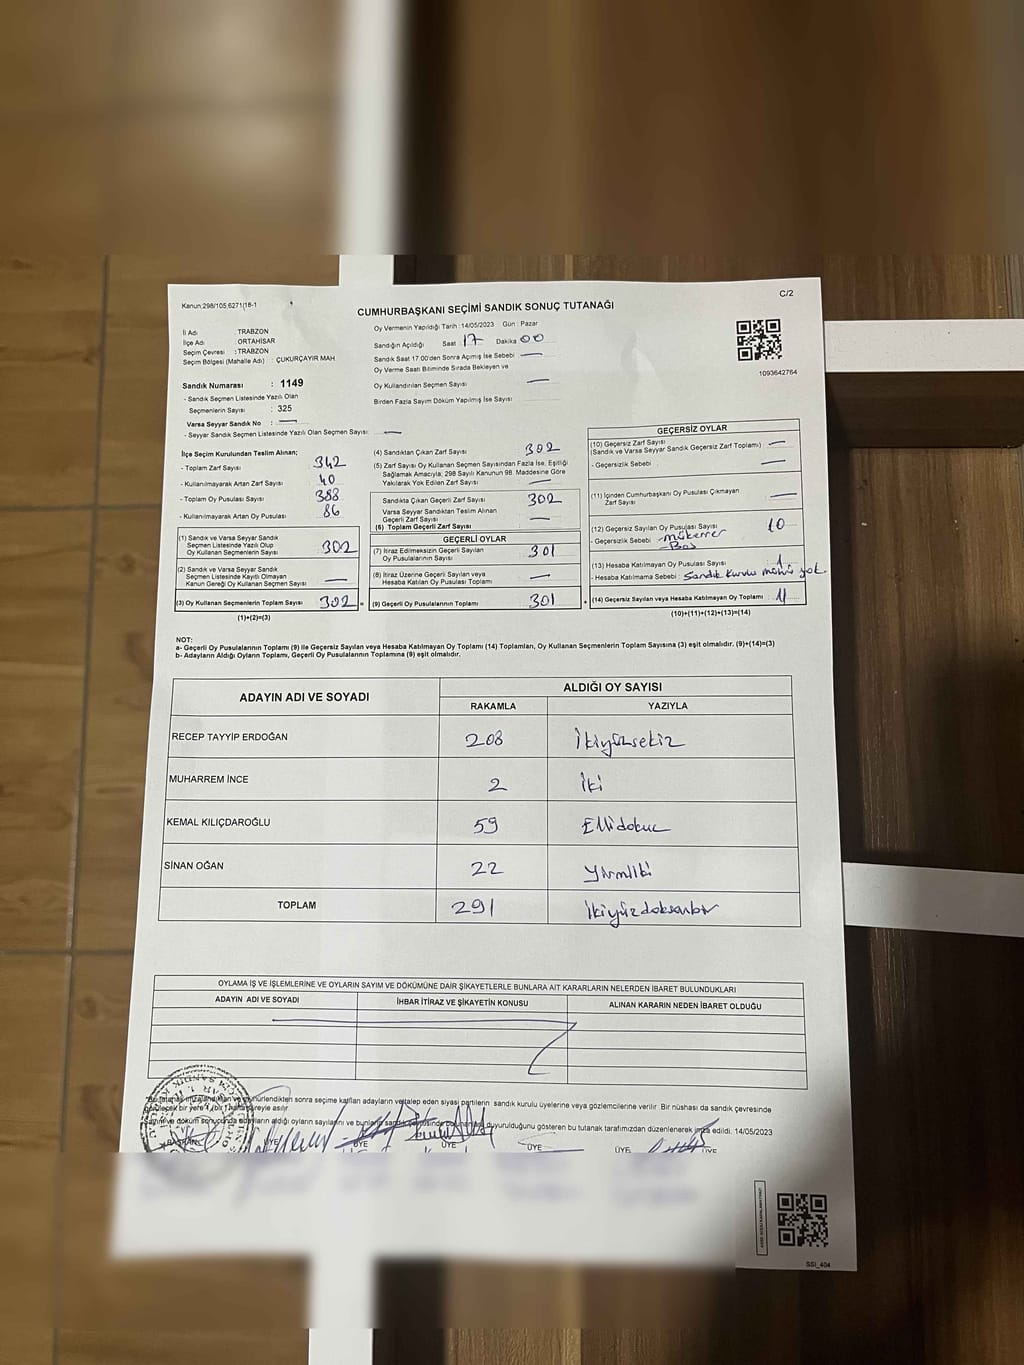 Kanun:298/105,6271/16-1
C/2
CUMHURBAŞKANI SEÇİMİ SANDIK SONUÇ TUTANAĞI
İl Adı : TRABZON
İlçe Adı : ORTAHİSAR
Seçim Çevresi : TRABZON
Seçim Bölgesi (Mahalle Adı) : ÇUKURÇAYIR MAH.
Sandık Numarası : 1149
- Sandık Seçmen Listesinde Yazılı Olan
Seçmenlerin Sayısı : 325
Varsa Seyyar Sandık No : —
- Seyyar Sandık Seçmen Listesinde Yazılı Olan Seçmen Sayısı: —
Oy Vermenin Yapıldığı Tarih : 14/05/2023 Gün : Pazar
Sandığın Açıldığı Saat : 17 Dakika 00
Sandık Saat 17:00'den Sonra Açımış İse Sebebi —
Oy Verme Saati Bitiminde Sırada Bekleyen ve
Oy Kullandırılan Seçmen Sayısı —
Birden Fazla Sayım Döküm Yapılmış İse Sayısı
1093642764
İlçe Seçim Kurulundan Teslim Alınan;
- Toplam Zarf Sayısı : 342
- Kullanılmayarak Artan Zarf Sayısı : 40
- Toplam Oy Pusulası Sayısı : 388
- Kullanılmayarak Artan Oy Pusulası : 86
(1) Sandık ve Varsa Seyyar Sandık
Seçmen Listesinde Yazılı Olup
Oy Kullanan Seçmenlerin Sayısı : 302
(2) Sandık ve Varsa Seyyar Sandık
Seçmen Listesinde Kayıtlı Olmayan
Kanun Gereği Oy Kullanan Seçmen Sayısı : —
(3) Oy Kullanan Seçmenlerin Toplam Sayısı : 302
(1)+(2)=(3)
(4) Sandıktan Çıkan Zarf Sayısı 302
(5) Zarf Sayısı Oy Kullanan Seçmen Sayısından Fazla İse, Eşitliği
Sağlamak Amacıyla; 298 Sayılı Kanunun 98. Maddesine Göre
Yakılarak Yok Edilen Zarf Sayısı —
Sandıkta Çıkan Geçerli Zarf Sayısı 302
Varsa Seyyar Sandıktan Teslim Alınan
Geçerli Zarf Sayısı —
(6) Toplam Geçerli Zarf Sayısı
GEÇERLİ OYLAR
(7) İtiraz Edilmeksizin Geçerli Sayılan
Oy Pusulalarının Sayısı : 301
(8) İtiraz Üzerine Geçerli Sayılan veya
Hesaba Katılan Oy Pusulası Toplamı : —
(9) Geçerli Oy Pusulalarının Toplamı : 301
GEÇERSİZ OYLAR
(10) Geçersiz Zarf Sayısı
(Sandık ve Varsa Seyyar Sandık Geçersiz Zarf Toplamı) : —
- Geçersizlik Sebebi : —
(11) İçinden Cumhurbaşkanı Oy Pusulası Çıkmayan
Zarf Sayısı : —
(12) Geçersiz Sayılan Oy Pusulası Sayısı : 10
- Geçersizlik Sebebi : mükerrer
Boş
(13) Hesaba Katılmayan Oy Pusulası Sayısı : 1
- Hesaba Katılmama Sebebi : Sandık Kurulu mührü yok.
(14) Geçersiz Sayılan veya Hesaba Katılmayan Oy Toplamı : 11
(10)+(11)+(12)+(13)=(14)
NOT:
a- Geçerli Oy Pusulalarının Toplamı (9) ile Geçersiz Sayılan veya Hesaba Katılmayan Oy Toplamı (14) Toplamları, Oy Kullanan Seçmenlerin Toplam Sayısına (3) eşit olmalıdır. (9)+(14)=(3)
b- Adayların Aldığı Oyların Toplamı, Geçerli Oy Pusulalarının Toplamına (9) eşit olmalıdır.
ADAYIN ADI VE SOYADI ALDIĞI OY SAYISI
RAKAMLA YAZIYLA
RECEP TAYYİP ERDOĞAN 208 İkiyüzsekiz
MUHARREM İNCE 2 İki
KEMAL KILIÇDAROĞLU 59 Ellidokuz
SİNAN OĞAN 22 Yirmiiki
TOPLAM 291 İkiyüzdoksanbir
OYLAMA İŞ VE İŞLEMLERİNE VE OYLARIN SAYIM VE DÖKÜMÜNE DAİR ŞİKAYETLERLE BUNLARA AİT KARARLARIN NELERDEN İBARET BULUNDUKLARI
ADAYIN ADI VE SOYADI İHBAR İTİRAZ VE ŞİKAYETİN KONUSU ALINAN KARARIN NEDEN İBARET OLDUĞU
sonra seçime katılan adayların ve talep eden siyasi partilerin sandık kurulu üyelerine veya gözlemcilerine verilir. Bir nüshası da sandık çevresinde
bir yere asılır.
sayım ve döküm sonucunda adayların aldığı oyların sayılarını ve duyurulduğunu gösteren bu tutanak tarafımızdan düzenlenerek imza edildi. 14/05/2023
BAŞKAN ÜYE ÜYE ÜYE ÜYE ÜYE ÜYE
SSI_404